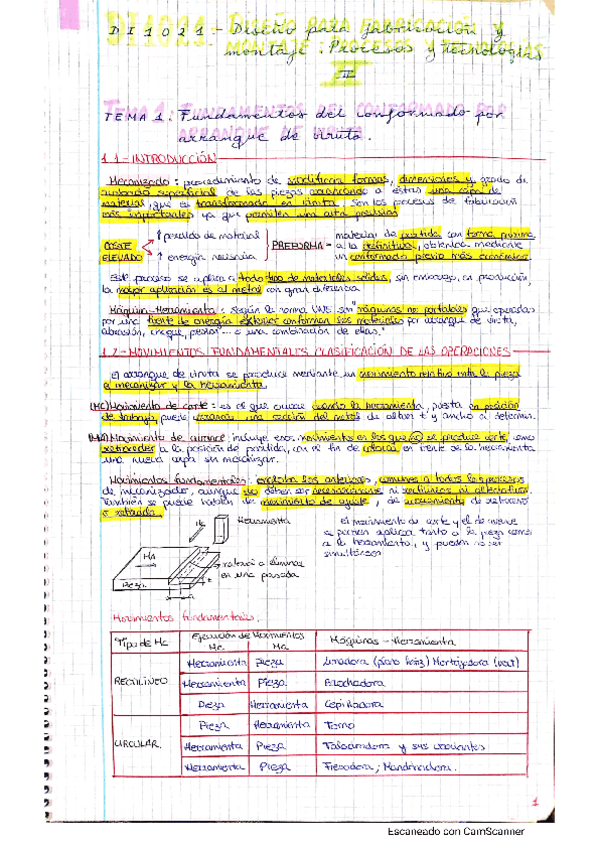 DI1021.- Diseño para fabricación y
montaje: Procesos y tecnologías
II
TEMA 1: Fundamentos del conformado por
arranque de viruta.
1.1.- INTRODUCCIÓN
Mecanizado: procedimiento de modificar formas, dimensiones y grado de
acabado superficial de las piezas arrancando a éstas una capa de
material, que es transformado en viruta. Son los procesos de fabricación
más importantes ya que permiten una alta precisión
COSTE ELEVADO
↑ perdida de material
↑ energía necesaria
PREFORMA - material de partida con forma próxima
a la definitiva, obtenida mediante
un conformado previo más económico.
Este proceso se aplica a todo tipo de materiales sólidos, sin embargo, en producción,
la mayor aplicación es al metal con gran diferencia.
Máquina-Herramienta: según la norma UNE son "máquinas no portables que operadas
por una fuente de energía exterior conforman los materiales por arranque de viruta,
abrasión, choque, presión... o una combinación de ellas."
1.2.- MOVIMIENTOS FUNDAMENTALES CLASIFICACIÓN DE LAS OPERACIONES
El arranque de viruta se produce mediante un movimiento relativo entre la pieza
a mecanizar y la herramienta.
(Mc) Movimiento de corte: es el que ocurre cuando la herramienta, puesta en posición
de trabajo, puede una sección del metal de alto t y ancho a determin.
(Ma) Movimiento de avance: incluye esos movimientos en los que no se produce corte, como
retroceder a la posición de partida, con el fin de colocar en frente de la herramienta
una nueva capa sin mecanizar.
Movimientos fundamentales: engloba los anteriores, comunes a todos los procesos
de mecanizados, aunque no deben ser necesariamente ni continuos ni alternativos.
También se puede hablar de movimiento de ajuste, de acercamiento de retroceso
o retirada.
Herramienta
Mc
Ma
Pieza.
material a eliminar
en una pasada
El movimiento de corte y el de avance
se pueden aplicar tanto a la pieza como
a la herramienta, y pueden no ser
simultáneos
Movimientos fundamentales.
Tipo de Mc
Ejecución de Movimientos
Máquinas - Herramienta
Mc. Ma.
RECTILÍNEO
Herramienta Pieza Limadora (plano horiz) Mortajadora (vert)
Herramienta Pieza. Brochadora
Pieza Herramienta Cepilladora
CIRCULAR.
Pieza Herramienta Torno
Herramienta Pieza Taladradora y sus variantes
Herramienta Pieza Fresadora; Mandrinadora.
1
Escaneado con CamScanner